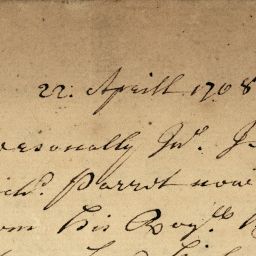 22. Aprill 1708
ersonally Jnº. J
ichᵈ. Parrot now
om his Roy